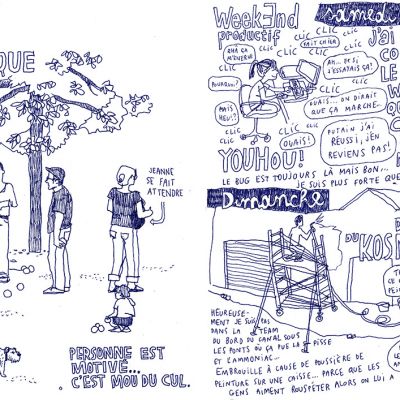 QUE
JEANNE
SE FAIT
ATTENDRE
PERSONNE EST
MOTIVÉ...
C'EST MOU DU CUL.
WeekEnd
productif
samedi
CLIC
CLIC
CLIC
CLIC
AHA ÇA
M'ÉNERVE
FAIT CHIER
CLIC
CLIC
POURQUOI?
AH... ET SI
J'ESSAYAIS ÇA!
MAIS
HEU!?
OUAIS... ON DIRAIT
QUE ÇA MARCHE...
CLIC
CLIC
CLIC
OUAIS!
PUTAIN J'AI
RÉUSSI, J'EN
REVIENS PAS!
YOUHOU!
LE BUG EST TOUJOURS LÀ MAIS BON...
JE SUIS PLUS FORTE QUE
J'ai
CO
LE
Dimanche
DU KOS
HEUREUSE-
MENT JE SUIS PAS
DANS LA TEAM
DU BORD DU CANAL SOUS
LES PONTS OÙ ÇA PUE LA PISSE
ET L'AMMONIAC...
EMBROUILLE À CAUSE DE POUSSIÈRE DE
PEINTURE SUR UNE CAISSE... PARCE QUE LES
GENS AIMENT ROUSPÉTER ALORS ON LUI A